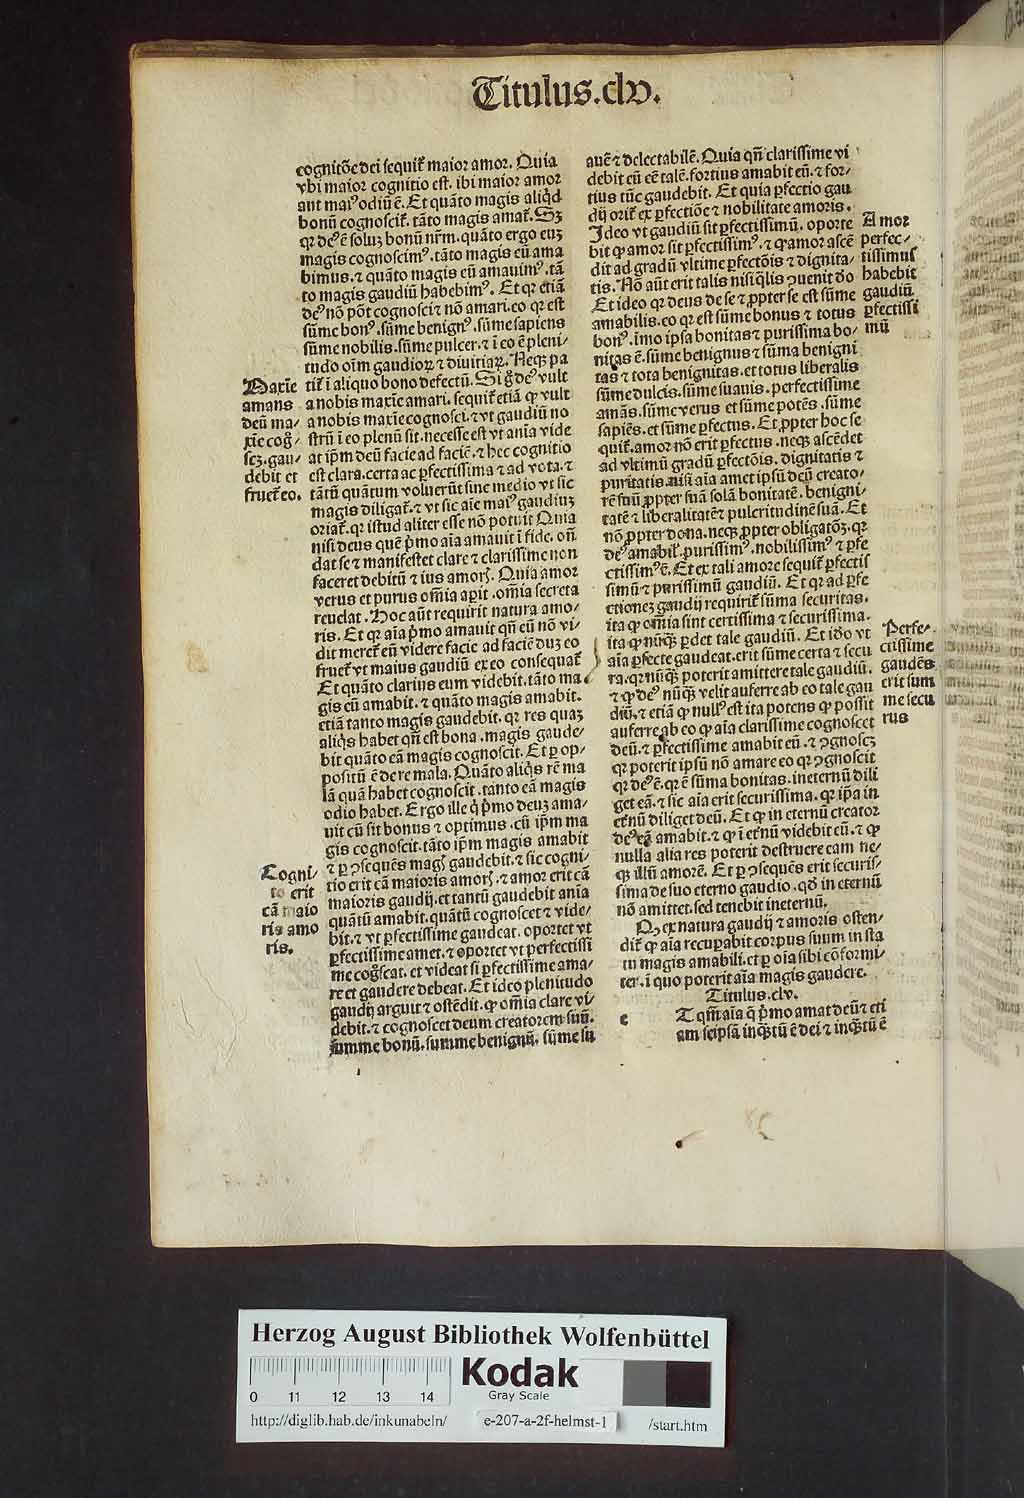 Titulus.clv.
cognitõe dei sequit᷑ maior amor. Quia
vbi maior cognitio est. ibi maior amor
aut maiꝰ odiũ ẽ. Et quãto magis aliqͥd
bonũ cognoscit᷑. tãto magis amat᷑. Sꝫ
qꝛ deꝰ ẽ soluꝫ bonũ nr̃m. quãto ergo euꝫ
magis cognoscimꝰ. tãto magis eũ ama
bimus. ⁊ quãto magis eũ amauimꝰ. tã
to magis gaudiũ habebimꝰ. Et qꝛ etiã
deꝰ nõ põt cognosci ⁊ nõ amari. eo qꝛ est
sũme bonꝰ. sũme benignꝰ. sũme sapiens
sũme nobilis. sũme pulcer. ⁊ ĩ eo ẽ pleni⸗
tudo oĩm gaudioꝝ ⁊ diuitiaꝝ. Neqꝫ pa
tit᷑ ĩ aliquo bono defectũ. Si g̊ deꝰ vult
a nobis maxĩe amari. sequit᷑ etiã ꝙ vult
a nobis maxĩe cognosci. ⁊ vt gaudiũ no
strũ ĩ eo plenũ sit. necesse est vt anĩa vide
at ip̃m deũ facie ad faciẽ. ⁊ hec cognitio
est clara. certa ac ꝑfectissima ⁊ ad vota. ⁊
tãtũ quãtum voluerũt sine medio vt sic
magis diligat᷑. ⁊ vt sic aĩe maiꝰ gaudiuꝫ
oriat᷑. qꝛ istud aliter esse nõ potuit Quia
nisi deus quẽ pͥmo aĩa amauit ĩ fide. oñ
dat se ⁊ manifestet clare ⁊ clarissime non
faceret debitũ ⁊ ius amorꝭ. Quia amor
verus et purus om̃ia aꝑit. om̃ia secreta
reuelat. Hoc aũt requirit natura amo⸗
ris. Et qꝛ aĩa pͥmo amauit qñ eũ nõ vi⸗
dit meret᷑ eũ videre facie ad faciẽ duꝫ eo
fruet᷑ vt maius gaudiũ ex eo consequat᷑
Et quãto clarius eum videbit. tãto ma
gis eũ amabit. ⁊ quãto magis amabit.
etiã tanto magis gaudebit. qꝛ res quaꝫ
aliqͥs habet qñ est bona. magis gaude⸗
bit quãto eã magis cognoscit. Et ꝑ op⸗
positũ ẽ de re mala. Quãto aliqͥs rẽ ma
lã quã habet cognoscit. tanto eã magis
odio habet. Ergo ille qͥ pͥmo deuꝫ ama⸗
uit cũ sit bonus ⁊ optimus. cũ ip̃m ma
gis cognoscit. tãto ip̃m magis amabit
⁊ ꝑ ꝯsequẽs magꝭ gaudebit. ⁊ sic cogni⸗
tio erit cã maioris amorꝭ. ⁊ amor erit cã
maioris gaudij. et tantũ gaudebit anĩa
quãtũ amabit. quãtũ cognoscet ⁊ vide⸗
bit. ⁊ vt ꝑfectissime gaudeat. oportet vt
ꝑfectissime amet. ⁊ oportet vt perfectissi
me cog̃scat. et videat si ꝑfectissime ama⸗
re et gaudere debeat. Et ideo plenitudo
gaudij arguit ⁊ ostẽdit. ꝙ om̃ia clare vi
debit. ⁊ cognoscet deum creatorem suũ.
summe bonũ. summe benignũ. sũme su
Maxĩe
amans
deũ ma⸗
xĩe cog̃⸗
scꝫ. gau⸗
debit et
fruet᷑ eo.
Cogni⸗
to erit
cã maio
ris amo
ris.
auẽ ⁊ delectabilẽ. Quia qñ clarissime vi
debit eũ eẽ talẽ. fortius amabit eũ. ⁊ for⸗
tius tũc gaudebit. Et quia ꝑfectio gau
dij orit᷑ ex ꝑfectiõe ⁊ nobilitate amoris.
Ideo vt gaudiũ sit ꝑfectissimũ. oporte
bit ꝙ amor sit ꝑfectissimꝰ. ⁊ ꝙ amor ascẽ
dit ad gradũ vltime ꝑfectõis ⁊ dignita⸗
tis. Nõ aũt erit talis nisi q̃lis ꝯuenit do
Et ideo qꝛ deus de se ⁊ ꝓpter se est sũme
amabilis. eo qꝛ est sũme bonus ⁊ totus
bonꝰ. ĩmo ipsa bonitas ⁊ purissima bo⸗
nitas ẽ. sũme benignus ⁊ sũma benigni
tas ⁊ tota benignitas. et totus liberalis
sũme dulcis. sũme suauis. perfectissime
amãs. sũme verus et sũme potẽs. sũme
sapiẽs. et sũme ꝑfectus. Et ꝓpter hoc se
quit᷑. amor nõ erit ꝑfectus. neqꝫ ascẽdet
ad vltimũ gradũ ꝑfectõis. dignitatis ⁊
puritatis. nisi aĩa amet ipsũ deũ creato⸗
rẽ suũ ꝓpter suã solã bonitatẽ. benigni⸗
tatẽ ⁊ liberalitatẽ ⁊ pulcritudinẽ suã. Et
nõ ꝓpter dona. neqꝫ ꝓpter obligatõꝫ. qꝛ
deꝰ amabil᷑. purissimꝰ. nobilissimꝰ ⁊ ꝑfe
ctissimꝰ ẽ. Et ex tali amore sequit᷑ ꝑfectis
simũ ⁊ purissimũ gaudiũ. Et qꝛ ad ꝑfe
ctioneꝫ gaudij requirit᷑ sũma securitas.
ita ꝙ om̃ia sint certissima ⁊ securissima.
ita ꝙ nũqͣꝫ ꝑdet tale gaudiũ. Et iďo vt
aĩa ꝑfecte gaudeat. erit sũme certa ⁊ secu
ra. qꝛ nũqͣꝫ poterit amittere tale gaudiũ.
⁊ ꝙ deꝰ nũqͣꝫ velit auferre ab eo tale gau
diũ. ⁊ etiã ꝙ nullꝰ est ita potens ꝙ possit
auferre ab eo ꝙ aĩa clarissime cognoscet
deũ. ⁊ ꝑfectissime amabit eũ. ⁊ ꝯgnoscꝫ
qꝛ poterit ipsũ nõ amare eo qꝛ ꝯgnoscit
qꝛ deꝰ ẽ. qꝛ ẽ sũma bonitas. in eternũ dili
get eã. ⁊ sic aĩa erit securissima. qꝛ ip̃a in
et᷑nũ diliget deũ. Et ꝙ in eternũ creator
deꝰ eã amabit. ⁊ ꝙ ĩ et᷑nũ videbit eũ. ⁊ ꝙ
nulla alia res poterit destruere eam ne⸗
qꝫ illũ amorẽ. Et ꝑ ꝯsequẽs erit securis⸗
sima de suo eterno gaudio. qď in eternũ
nõ amittet. sed tenebit in eternũ.
Qꝫ ex natura gaudij ⁊ amoris osten⸗
dit᷑ ꝙ aĩa recuꝑabit corpus suum in sta
tu magis amabili. et ꝑ oĩa sibi cõformi⸗
ter. ĩ quo poterit aĩa magis gaudere.
Titulus.clv.
e T qm̃ aĩa q̃ pͥmo amat deũ ⁊ eti
am seipsã inqͣꝫtũ ẽ dei ⁊ inqͣꝫtũ ẽ
Amor
perfec⸗
tissimus
habebit
gaudiũ
ꝑfectissi
mũ
Perfe⸗
ctissime
gaudẽs
erit sum
me secu
rus
Herzog August Bibliothek Wolfenbüttel
Kodak
Gray Scale
0 11 12 13 14
http://diglib.hab.de/inkunabeln/ e-207-a-2f-helmst-1 /start.htm